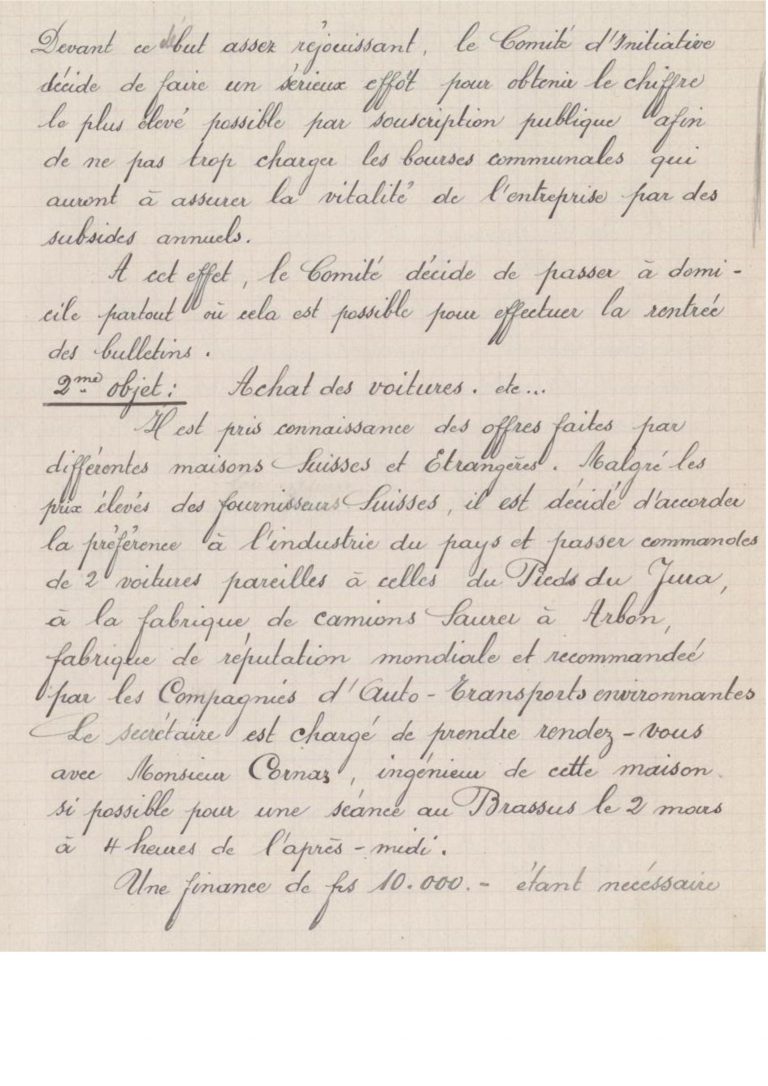 Devant ce début assez réjouissant, le Comité d'Initiative
décide de faire un sérieux effôt pour obtenir le chiffre
le plus élevé possible par souscription publique afin
de ne pas trop charger les bourses communales qui
auront à assurer la vitalité de l'entreprise par des
subsides annuels.
A cet effet, le Comité décide de passer à domi-
cile partout où cela est possible pour effectuer la rentrée
des bulletins.
2me objet: Achat des voitures. etc...
Il est pris connaissance des offres faites par
différentes maisons Suisses et Etrangères. Malgré les
prix élevés des fournisseurs Suisses, il est décidé d'accorder
la préférence à l'industrie du pays et passer commandes
de 2 voitures pareilles à celles du Pieds du Jura,
à la fabrique de camions Saurer à Arbon,
fabrique de réputation mondiale et recommandée
par les Compagnies d'Auto-Transports environnantes
Le secrétaire est chargé de prendre rendez-vous
avec Monsieur Cornaz, ingénieur de cette maison.
si possible pour une séance au Brassus le 2 mars
à 4 heures de l'après-midi.
Une finance de frs 10.000.- étant nécessaire